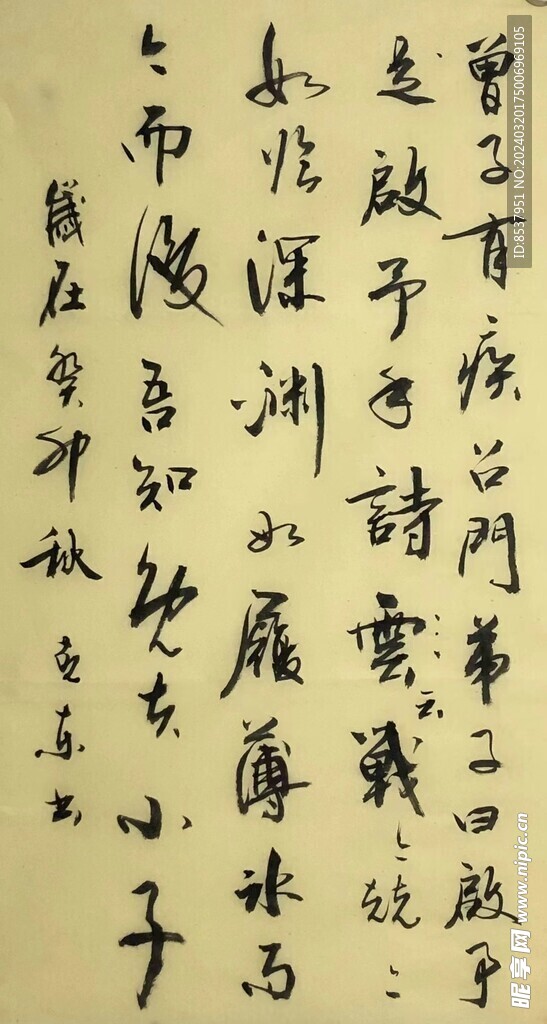 曾子有疾召門弟子曰啟予
足啟予手詩雲云戰〻兢〻
如临深渊如履薄冰而
〻而後吾知免夫小子
歲在癸卯秋 东书
ID:8537951 NO:20240320175006969105
昵享网 www.nipic.cn